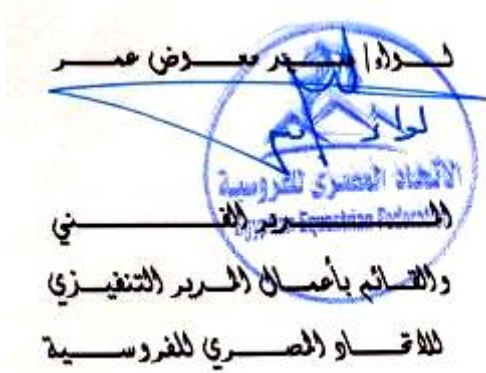 لواء/ معوض عمر
الاتحاد المصري للفروسية
Egyptian Equestrian Federation
المدير الفني
والقائم بأعمال المدير التنفيذي
للاتحاد المصري للفروسية